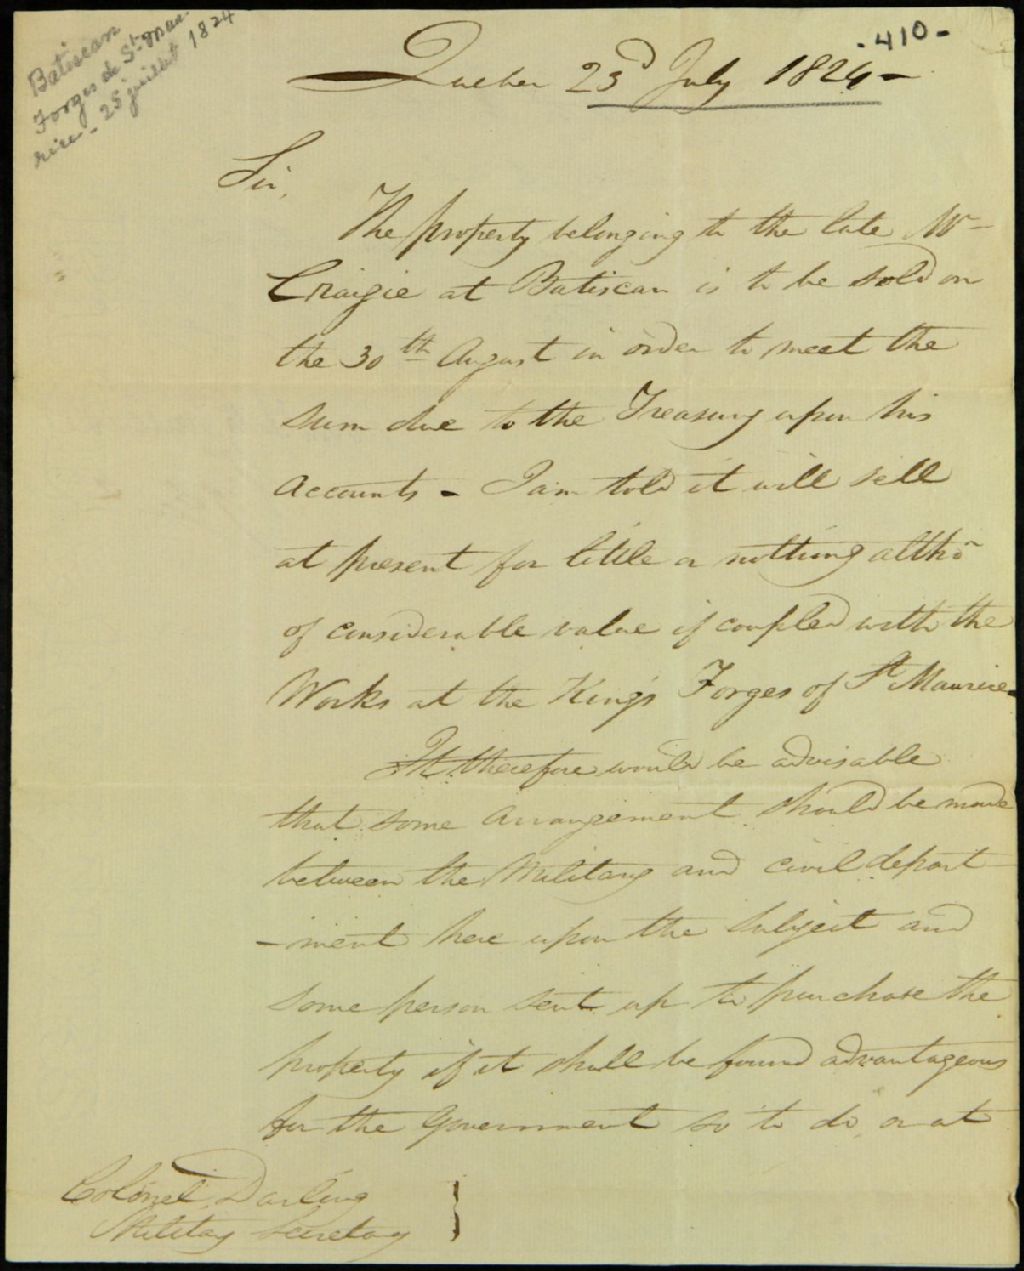 Batiscan
Forges de St. Mau-
rice - 25 juillet 1824
-410-
Quebec 23d July 1824 -
Sir,
The property belonging to the late Mr
Craigie at Batiscan is to be sold on
the 30th August in order to meet the
sum due to the Treasury upon his
Accounts - I am told it will sell
at present for little or nothing altho'
of considerable value if coupled with the
Works at the King's Forges of St Maurice
It therefore would be advisable
that some arrangement should be made
between the Military and civil depart-
-ment here upon the subject and
some person sent up to purchase the
property if it shall be found advantageous
for the Government so to do, or at
Colonel Darling
Military Secretary